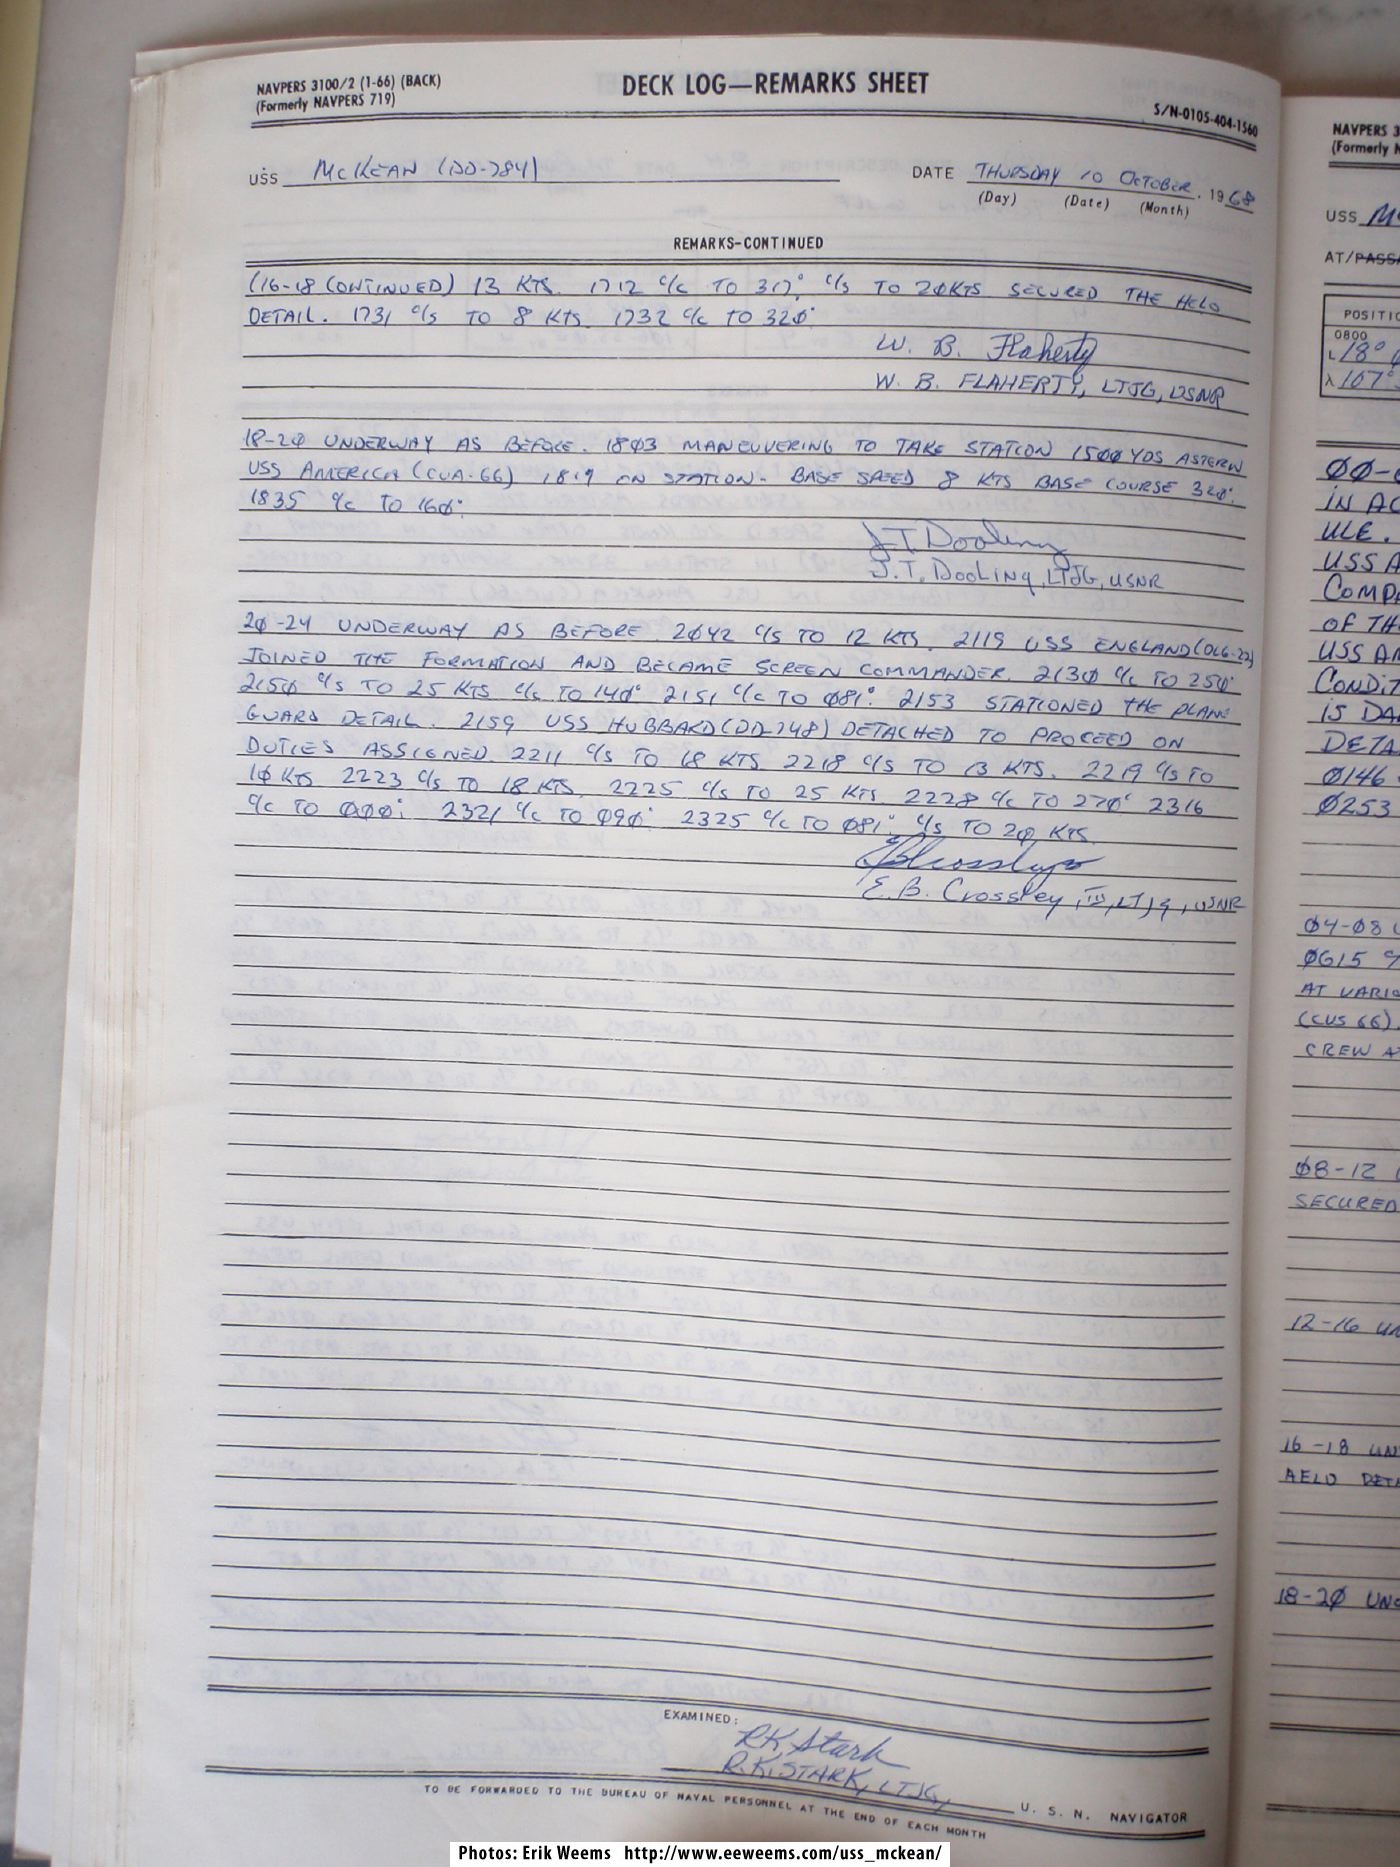 NAVPERS 3100/2 (1-66) (BACK)
(Formerly NAVPERS 719)
DECK LOG—REMARKS SHEET
S/N-0105-404-1560
USS McKEAN (DD-784)
DATE THURSDAY 10 OCTOBER, 1968
(Day) (Date) (Month)
REMARKS-CONTINUED
(16-18 CONTINUED) 13 KTS. 1712 C/C TO 317° C/S TO 20KTS SECURED THE HELO
DETAIL. 1731 C/S TO 8 KTS. 1732 C/C TO 320°
W. B. Flaherty
W. B. FLAHERTY, LTJG, USNR
18-20 UNDERWAY AS BEFORE. 1803 MANEUVERING TO TAKE STATION 1500 YDS ASTERN
USS AMERICA (CVA-66) 1819 ON STATION- BASE SPEED 8 KTS BASE COURSE 320°
1835 C/C TO 160°
J T Dooling
J.T. Dooling, LTJG, USNR
20-24 UNDERWAY AS BEFORE. 2042 C/S TO 12 KTS. 2119 USS ENGLAND (DLG-22)
JOINED THE FORMATION AND BECAME SCREEN COMMANDER. 2130 C/C TO 250°
2150 C/S TO 25 KTS C/C TO 140° 2151 C/C TO 081° 2153 STATIONED THE PLANE
GUARD DETAIL. 2159 USS HUBBARD (DD-748) DETACHED TO PROCEED ON
DUTIES ASSIGNED. 2211 C/S TO 18 KTS 2218 C/S TO 13 KTS. 2219 C/S TO
10 KTS 2223 C/S TO 18 KTS. 2225 C/S TO 25 KTS 2228 C/C TO 270° 2316
C/C TO 000° 2321 C/C TO 090° 2325 C/C TO 081° C/S TO 20 KTS.
E B Crossley
E.B. Crossley, III, LTJG, USNR
EXAMINED:
RK Stark
R.K. STARK, LTJG, U. S. N. NAVIGATOR
TO BE FORWARDED TO THE BUREAU OF NAVAL PERSONNEL AT THE END OF EACH MONTH
NAVPERS 3
(Formerly N
USS Mc
AT/PASSA
POSITIO
0800
L 18°
λ 107°
00-
IN AC
ULE.
USS A
COMPA
OF TH
USS AM
CONDIT
IS DA
DETA
0146
0253
04-08 U
0615
AT VARIO
(CVS 66).
CREW A
08-12 U
SECURED
12-16 UN
16-18 UN
AELO DETA
18-20 UND
Photos: Erik Weems http://www.eeweems.com/uss_mckean/